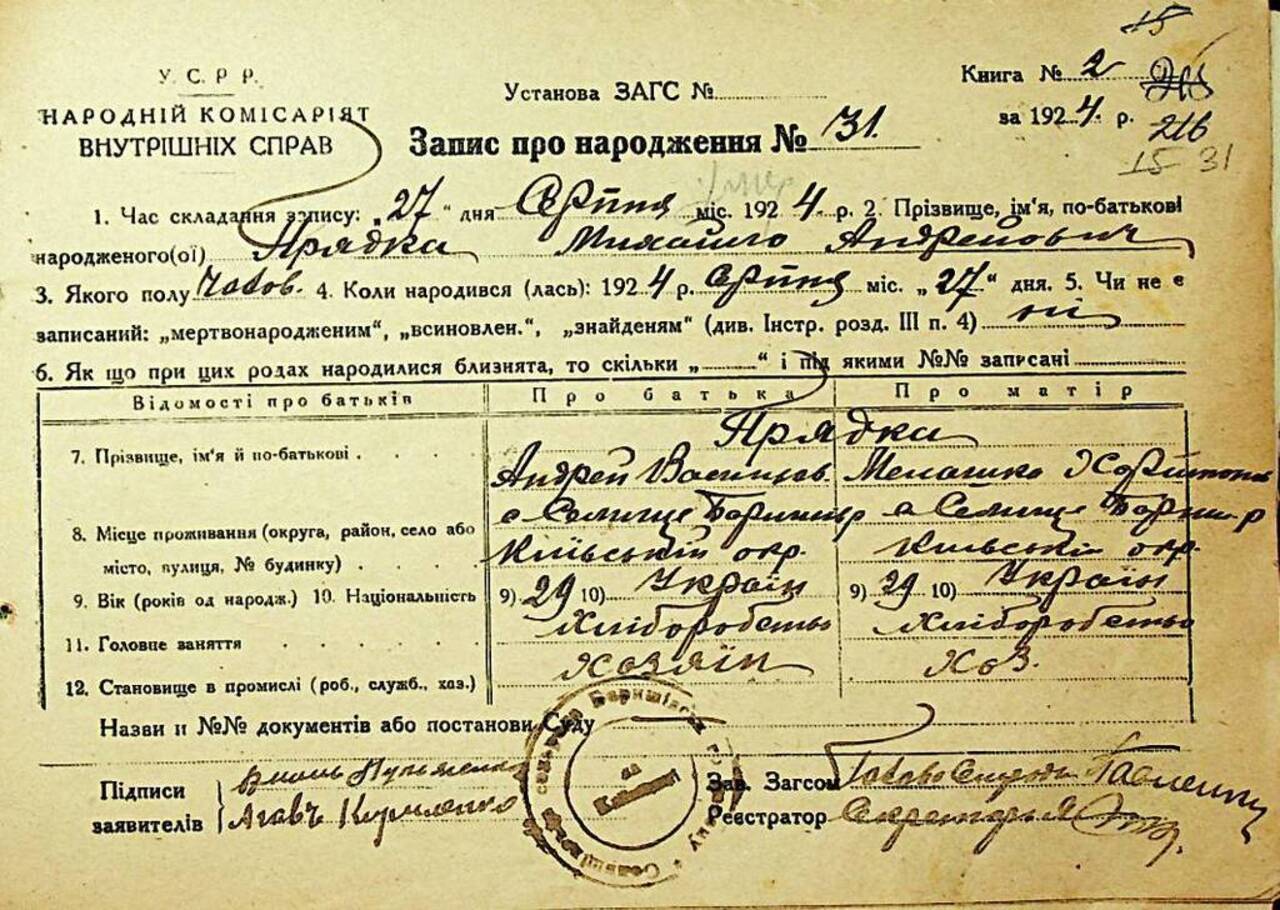 15
У.С.Р.Р.
НАРОДНІЙ КОМІСАРІЯТ
ВНУТРІШНІХ СПРАВ
Установа ЗАГС №
Книга № 2
за 1924 р.
216
15 31
Запис про народження № 31.
1. Час складання запису: „27“ дня Серпня міс. 1924. р. 2. Прізвище, ім'я, по-батькові
народженого(ої) Прядка Михайло Андрейович
3. Якого полу Чолов. 4. Коли народився (лась): 1924 р. Серпня міс. „27“ дня. 5. Чи не є
записаний: „мертвонародженим“, „всиновлен.“, „знайденям“ (див. Інстр. розд. III п. 4) ні
6. Як що при цих родах народилися близнята, то скільки „ “ і під якими №№ записані
Відомості про батьків Про батька Про матір
Прядка
7. Прізвище, ім'я й по-батькові . . . . Андрей Васильов. Мелашка
8. Місце проживання (округа, район, село або с Селище Бориш р с Селище Бориш р
місто, вулиця, № будинку) . . . . Київській окр. Київській окр.
9. Вік (років од народж.) 10. Національність 9) 29 10) Україн 9) 29 10) Україн
11. Головне заняття . . . . . Хліборобство Хліборобство
12. Становище в промислі (роб., служб., хаз.) Хозяїн Хоз.
Назви и №№ документів або постанови Суду
Підписи
заявителів
Агавъ Кириленко
Зав. Загсом Голова Сільради
Реєстратор Секретарь